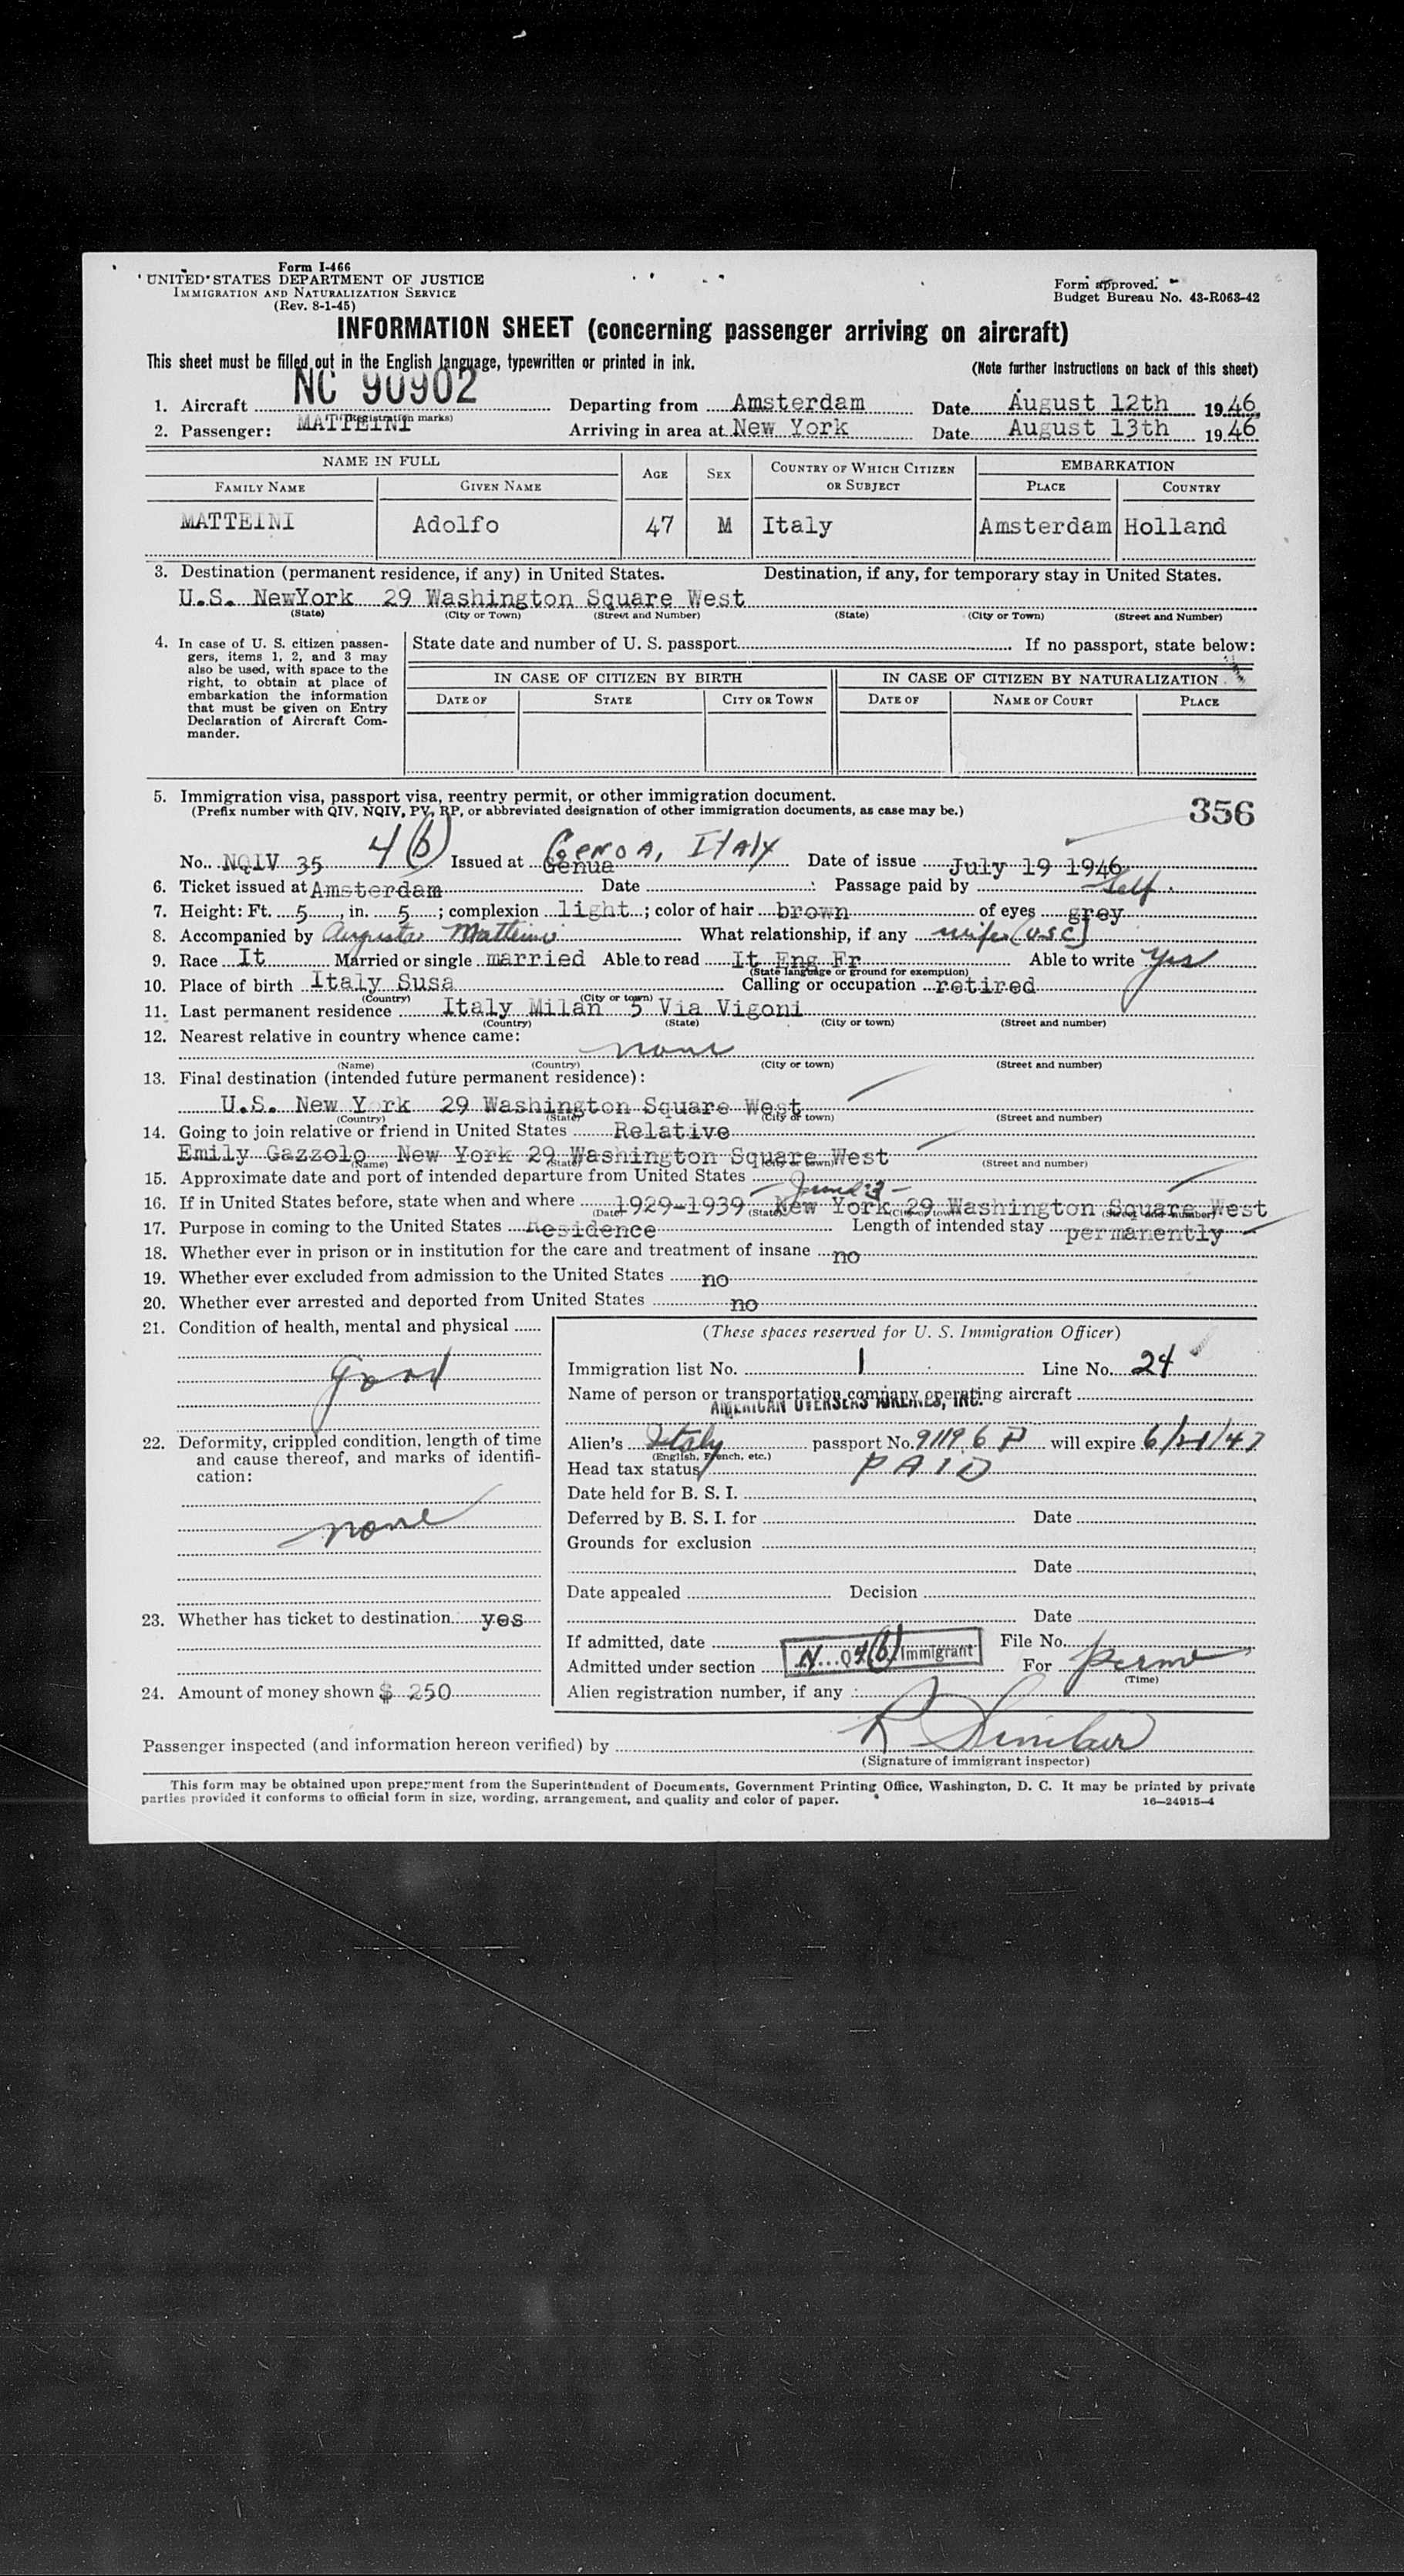 Form I-466
UNITED STATES DEPARTMENT OF JUSTICE
IMMIGRATION AND NATURALIZATION SERVICE
(Rev. 8-1-45)
Form approved.
Budget Bureau No. 43-R063-42
INFORMATION SHEET (concerning passenger arriving on aircraft)
This sheet must be filled out in the English language, typewritten or printed in ink.
(Note further instructions on back of this sheet)
1. Aircraft NC 90902 Departing from Amsterdam Date August 12th 1946
(Registration marks)
2. Passenger: MATTEINI Arriving in area at New York Date August 13th 1946
NAME IN FULL AGE SEX COUNTRY OF WHICH CITIZEN OR SUBJECT EMBARKATION
FAMILY NAME GIVEN NAME PLACE COUNTRY
MATTEINI Adolfo 47 M Italy Amsterdam Holland
3. Destination (permanent residence, if any) in United States. Destination, if any, for temporary stay in United States.
U.S. NewYork 29 Washington Square West
(State) (City or Town) (Street and Number) (State) (City or Town) (Street and Number)
4. In case of U. S. citizen passen-
gers, items 1, 2, and 3 may
also be used, with space to the
right, to obtain at place of
embarkation the information
that must be given on Entry
Declaration of Aircraft Com-
mander.
State date and number of U. S. passport If no passport, state below:
IN CASE OF CITIZEN BY BIRTH IN CASE OF CITIZEN BY NATURALIZATION
DATE OF STATE CITY OR TOWN DATE OF NAME OF COURT PLACE
5. Immigration visa, passport visa, reentry permit, or other immigration document.
(Prefix number with QIV, NQIV, PV, RP, or abbreviated designation of other immigration documents, as case may be.)
356
4(b) Genoa, Italy
No. NQIV 35 Issued at Genua Date of issue July 19 1946
6. Ticket issued at Amsterdam Date Passage paid by Self
7. Height: Ft. 5, in. 5; complexion light; color of hair brown of eyes grey
8. Accompanied by Augusta Matteini What relationship, if any wife (USC)
9. Race It Married or single married Able to read It Eng Fr Able to write yes
(State language or ground for exemption)
10. Place of birth Italy Susa Calling or occupation retired
(Country) (City or town)
11. Last permanent residence Italy Milan 5 Via Vigoni
(Country) (State) (City or town) (Street and number)
12. Nearest relative in country whence came:
none
(Name) (Country) (City or town) (Street and number)
13. Final destination (intended future permanent residence):
U.S. New York 29 Washington Square West
(Country) (State) (City or town) (Street and number)
14. Going to join relative or friend in United States Relative
Emily Gazzolo New York 29 Washington Square West
(Name) (State) (City or town) (Street and number)
15. Approximate date and port of intended departure from United States
16. If in United States before, state when and where 1929-1939 New York 29 Washington Square West
(Date) (State) (City or town) (Street and number)
17. Purpose in coming to the United States Residence Length of intended stay permanently
18. Whether ever in prison or in institution for the care and treatment of insane no
19. Whether ever excluded from admission to the United States no
20. Whether ever arrested and deported from United States no
21. Condition of health, mental and physical
good
22. Deformity, crippled condition, length of time
and cause thereof, and marks of identifi-
cation:
none
23. Whether has ticket to destination yes
24. Amount of money shown $ 250
(These spaces reserved for U. S. Immigration Officer)
Immigration list No. 1 Line No. 24
Name of person or transportation company operating aircraft
AMERICAN OVERSEAS AIRLINES, INC.
Alien's Italy passport No. 911196 P will expire 6/21/47
(English, French, etc.)
Head tax status PAID
Date held for B. S. I.
Deferred by B. S. I. for Date
Grounds for exclusion
Date
Date appealed Decision
Date
If admitted, date File No.
Admitted under section N Q 4(b) Immigrant For perm
(Time)
Alien registration number, if any
Passenger inspected (and information hereon verified) by R Sinclair
(Signature of immigrant inspector)
This form may be obtained upon prepayment from the Superintendent of Documents, Government Printing Office, Washington, D. C. It may be printed by private
parties provided it conforms to official form in size, wording, arrangement, and quality and color of paper.
16—24915-4